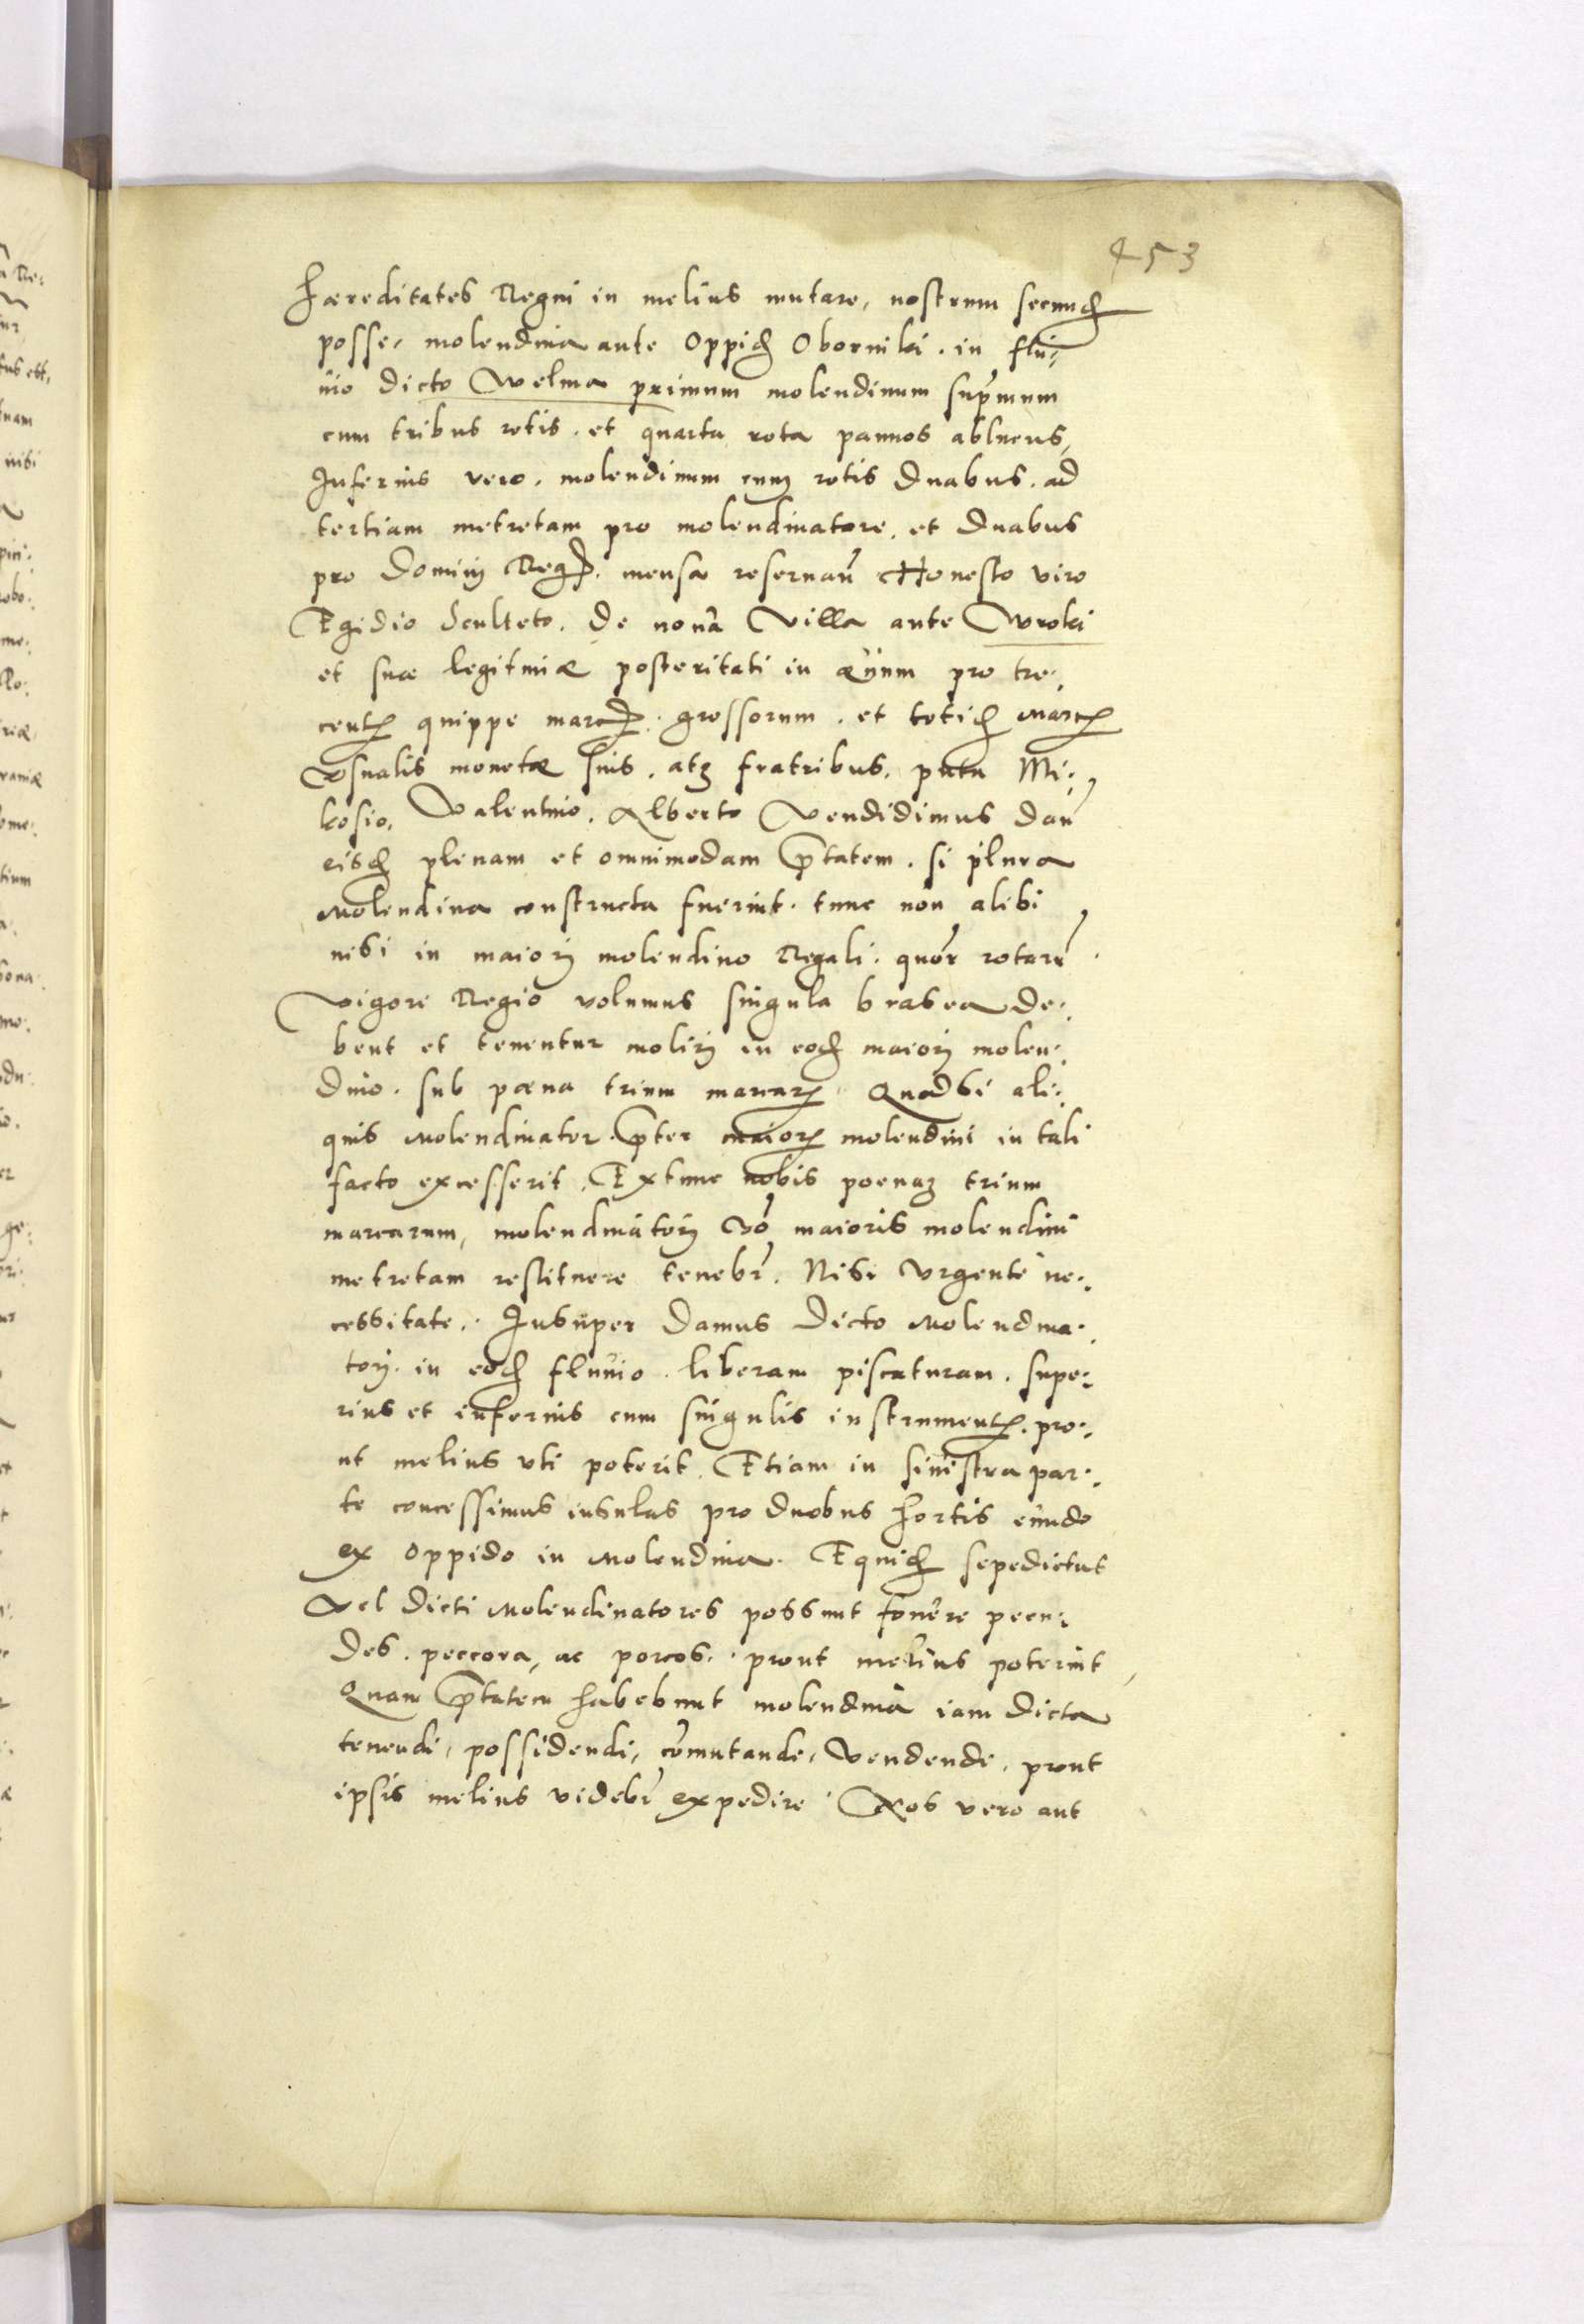 453
haereditates Regni in melius mutare, nostrum secund
posse, molendina ante Oppid Oborniki. in flu-
uio dicto Welma primum molendinum supmum
cum tribus rotis. et quarta rota pannos abluens,
Inferius vero. molendinum cum rotis duabus. ad
tertiam metretam pro molendinatore. et duabus
pro dominij Reg. mensa reseruan Honesto viro
Egidio Sculteto. de noua Villa ante Wroki
et suae legitimae posteritati in aeuum pro tre:
cent quippe marc. grossorum. et totid marc
vsualis monetae suis. atq fratribus. puta Mi:
kosio, Valentino. Alberto Vendidimus dan
eisd plenam et omnimodam ptatem. si plura
molendina constructa fuerint. tunc non alibi
nisi in maiorj molendino Regali. quor rotar
vigore Regio volumus singula brasea de:
bent et tenentur molirj in eod maiorj molen:
dino. sub paena trium marcar Quodsi ali:
quis molendinator. pter maior molendini in tali
facto excesserit, Extunc nobis poenam trium
marcarum, molendinatorj vo maioris molendini
metretam restituere tenebr. Nisi vrgente ne:
cessitate. Insuper damus dicto molendina:
torj. in eod fluuio. liberam piscaturam. supe:
rius et inferius cum singulis instrument. pro:
ut melius vti poterit. Etiam in sinistra par:
te concessimus insulas pro duobus hortis eundo
ex oppido in molendina. Equid sepedictus
vel dicti molendinatores possunt fouere pecu:
des. peccora, ac porcos. prout melius poterint
Quam ptatem habebunt molendina iam dicta
tenendi, possidendi, comutande, vendende, prout
ipsis melius videbr expedire. Nos vero aut